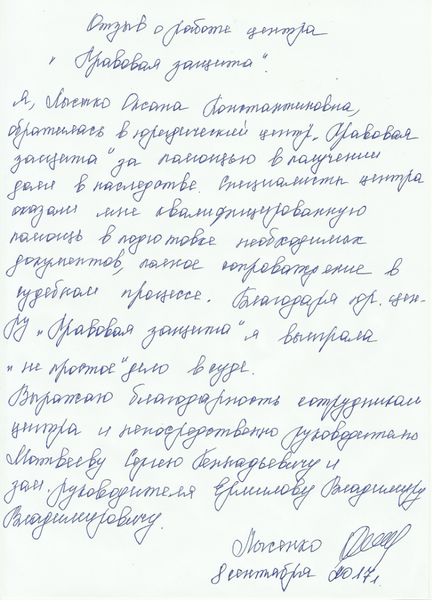 Отзыв о работе центра
„Правовая защита“.
Я, Лысенко Оксана Константиновна,
обратилась в юридический центр „Правовая
защита“ за помощью в получении
доли в наследстве. Специалисты центра
оказали мне квалифицированную
помощь в подготовке необходимых
документов, полное сопровождение в
судебном процессе. Благодаря юр. цен-
ру „Правовая защита“ я выиграла
„не простое“ дело в суде.
Выражаю благодарность сотрудникам
центра и непосредственно руководителю
Матвееву Сергею Геннадьевичу и
зам. руководителя Ермилову Владимиру
Владимировичу.
Лысенко
8 сентября 2017 г.